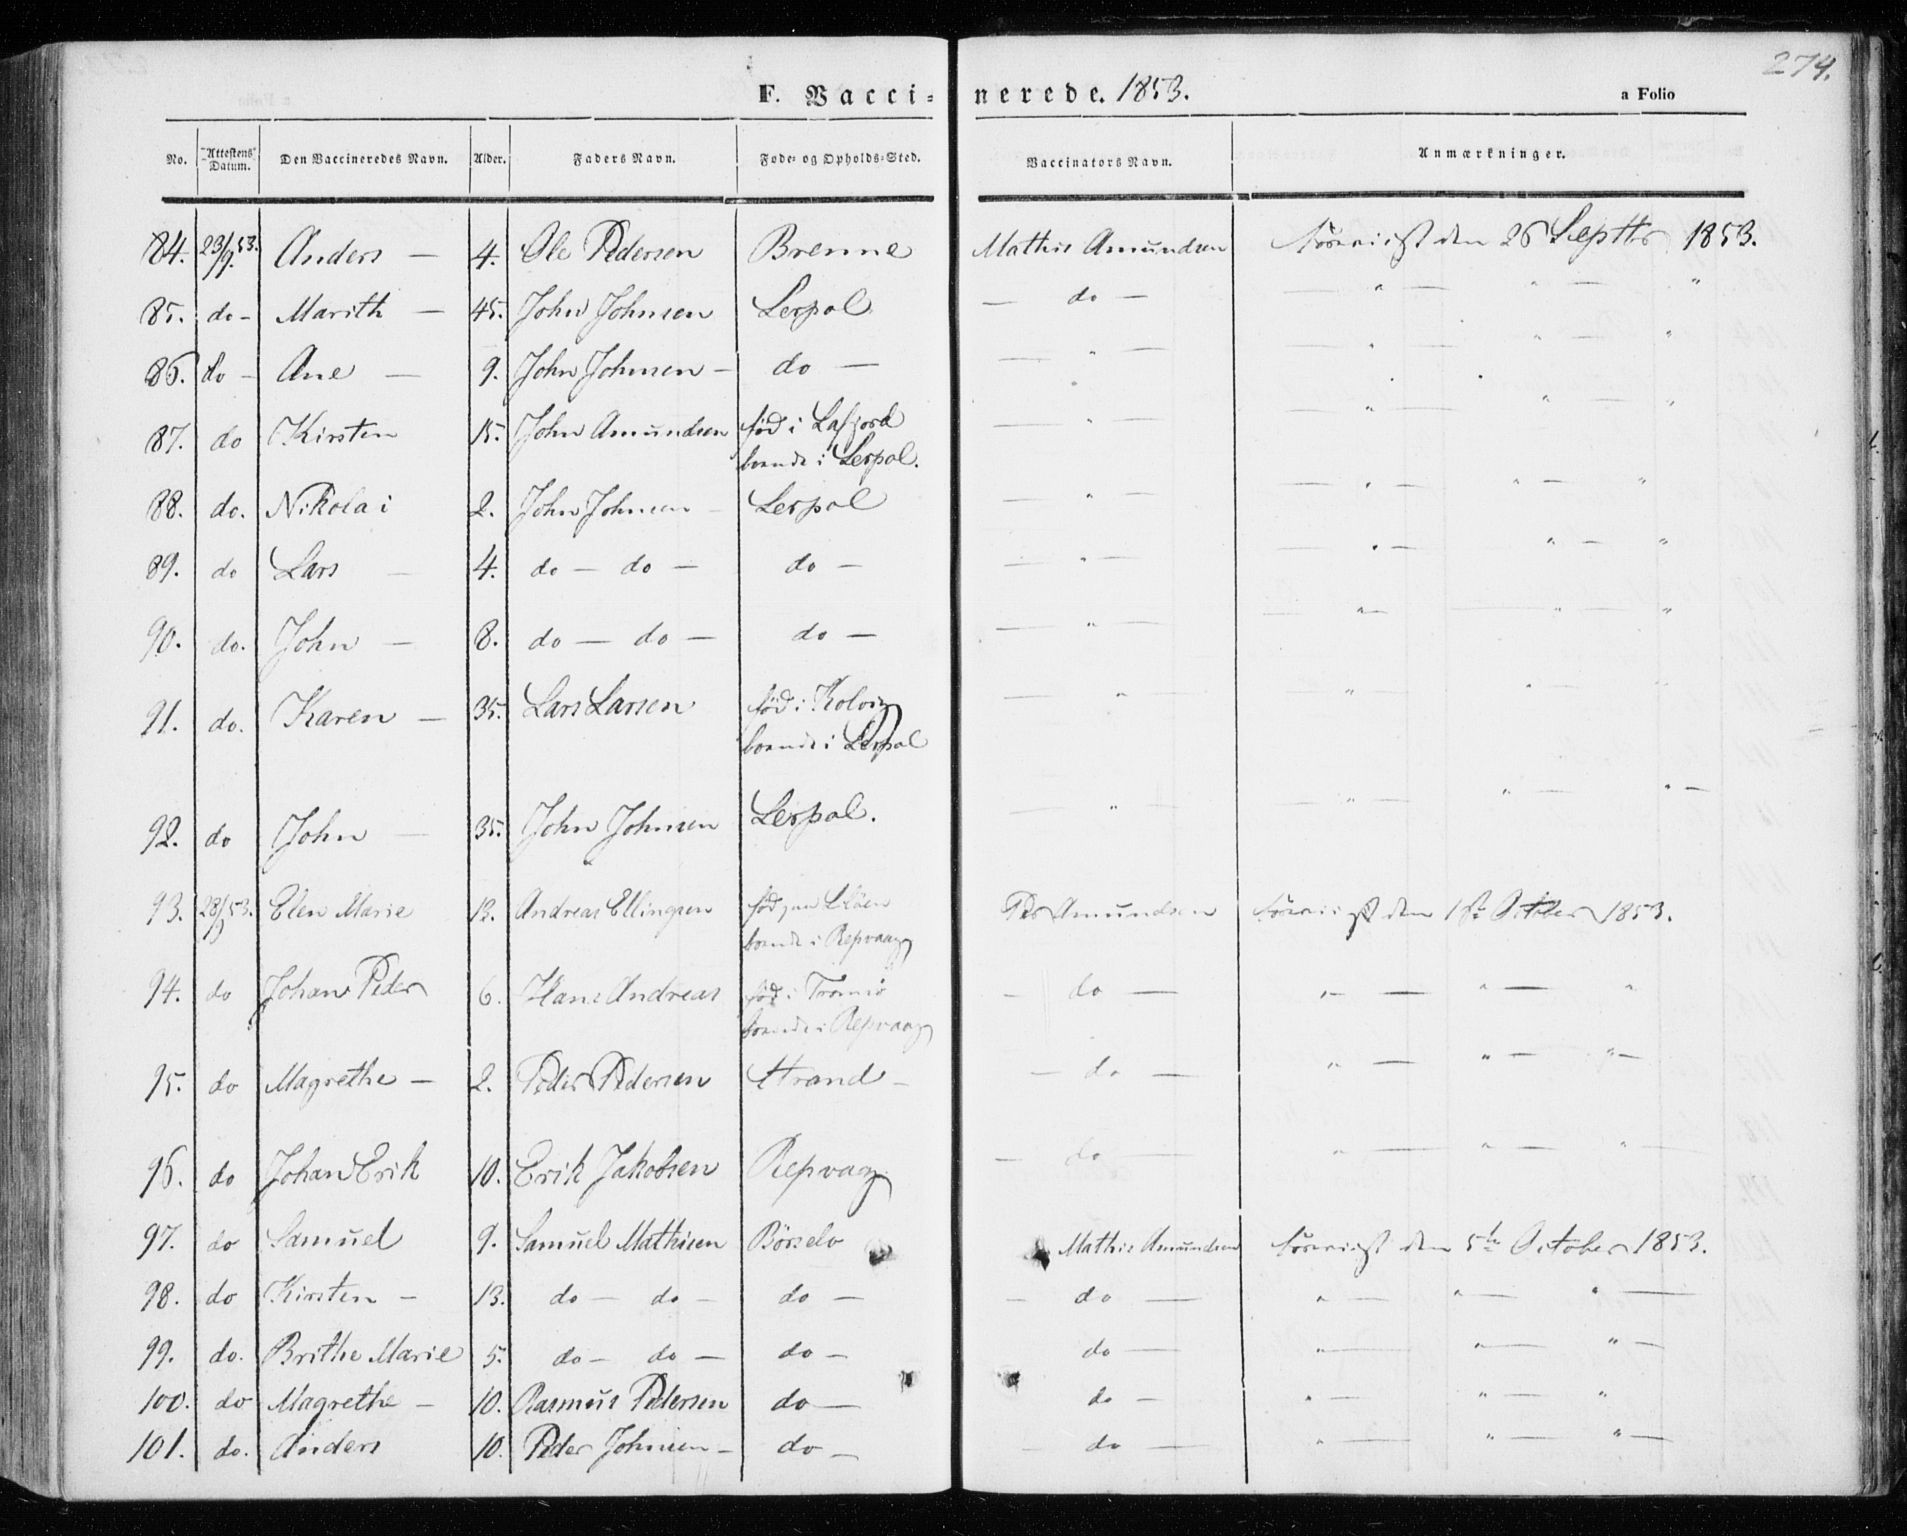 274.
F. Vaccinerede. 1853. a Folio
No. Attestens Datum. Den Vaccineredes Navn. Alder. Faders Navn. Føde- og Opholds-Sted. Vaccinators Navn. Anmærkninger.
84. 23/9 53. Anders — 4. Ole Pedersen Brenne Mathis Amundsen den 26 Septbr 1853.
85. do — Marith — 45. John Johnsen Lerpol — do — — " — " — "
86. do — Ane — 9. John Johnsen — do — — " — — " — " — "
87. do Kirsten 15. John Amundsen fød i Lafjord — " — — " — " — "
boende i Lerpol.
88. do. Nikolai 2. John Johnsen — Lerpol — " — — " — " — "
89. do Lars — 4. do — do — do — — " — — " — " — "
90. do. John — 8. do — do — do — — " — — " — — " — "
91. do. Karen — 35. Lars Larsen fød i Kolvig — " — " — " —
boende i Lerpol
92. do John — 35. John Johnsen Lerpol. — " — — " — " — " —
93. 28/9 53. Elen Marie 13. Andreas Ellingsen fød Peder Amundsen den 1ste October 1853.
boende i Repvaag
94. do Johan Peder 6. Hans Andreas fød i Tromsø — do — " — — " — "
boende i Repvaag
95. do Magrethe — 2. Peder Pedersen Strand — — do — " — — " — " —
96. do Johan Erik 10. Erik Jakobsen Repvaag — do — " — — " — " —
97. do Samuel 9. Samuel Mathisen Börselv Mathis Amundsen den 5te October 1853.
98. do Kirsten — 13. do — do — do — — do — " — " — " —
99. do. Brithe Marie 5. do — do — do — do — " — " — " —
100. do Magrethe — 10. Rasmus Pedersen do — do — " — " — "
101. do. Anders 10. Peder Johnsen — do — do — " — " — " —